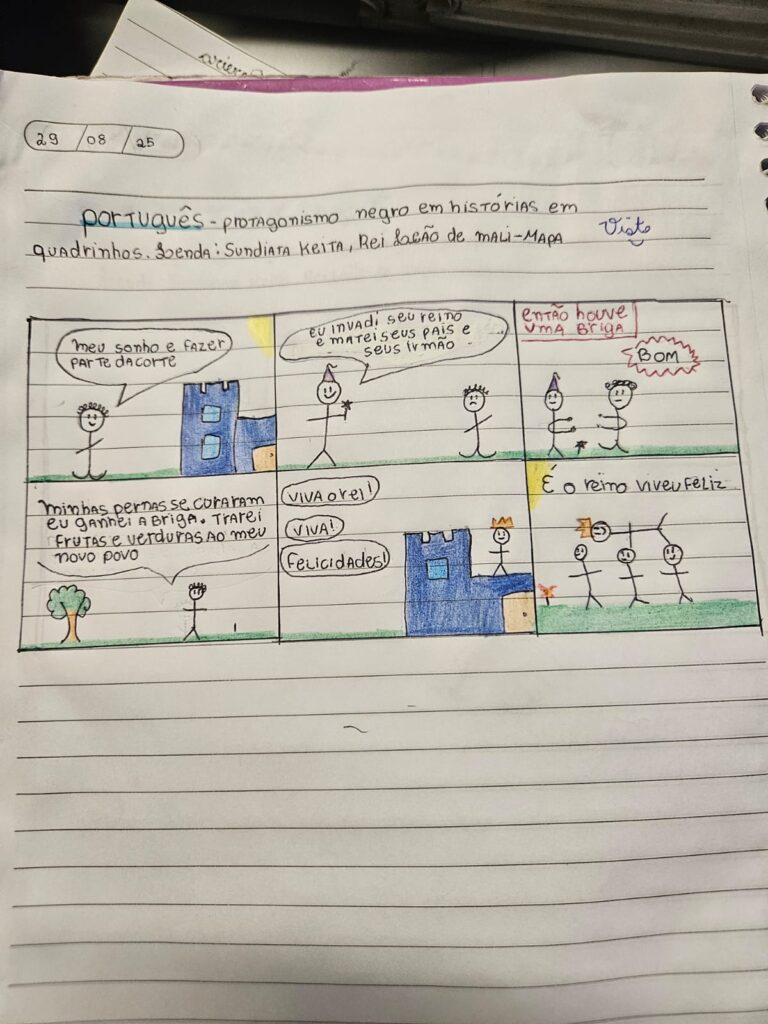 29 / 08 / 25
português - protagonismo negro em histórias em
quadrinhos. Lenda: Sundiata Keita, Rei Leão de mali-MAPA
Visto
meu sonho e fazer
parte da corte
eu invadi seu reino
e matei seus pais e
seus irmão
então houve
uma briga
BOM
minhas pernas se curaram
eu ganhei a briga. Trarei
frutas e verduras ao meu
novo povo
viva o rei!
viva!
felicidades!
É o reino viveu feliz